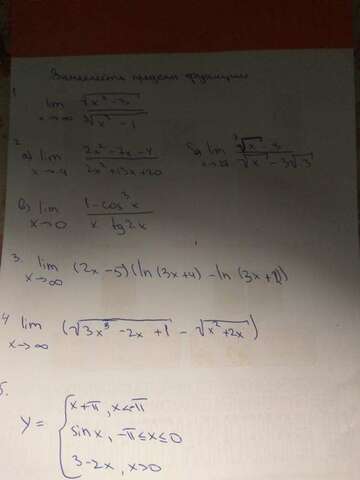 Вычислить пределы функции
1. lim x→∞ √(7x³-3) / ∛(x³-1)
2. а) lim x→-4 (2x²-7x-4) / (2x²+13x+20) б) lim x→27 (∛x - 3) / (√x - 3√3)
в) lim x→0 (1-cos³x) / (x tg2x)
3. lim x→∞ (2x-5)(ln(3x+4) - ln(3x+1))
4 lim x→∞ (√(3x³-2x+1) - √(x²+2x))
5. y = { x+π, x<-π
sinx, -π≤x≤0
3-2x, x>0